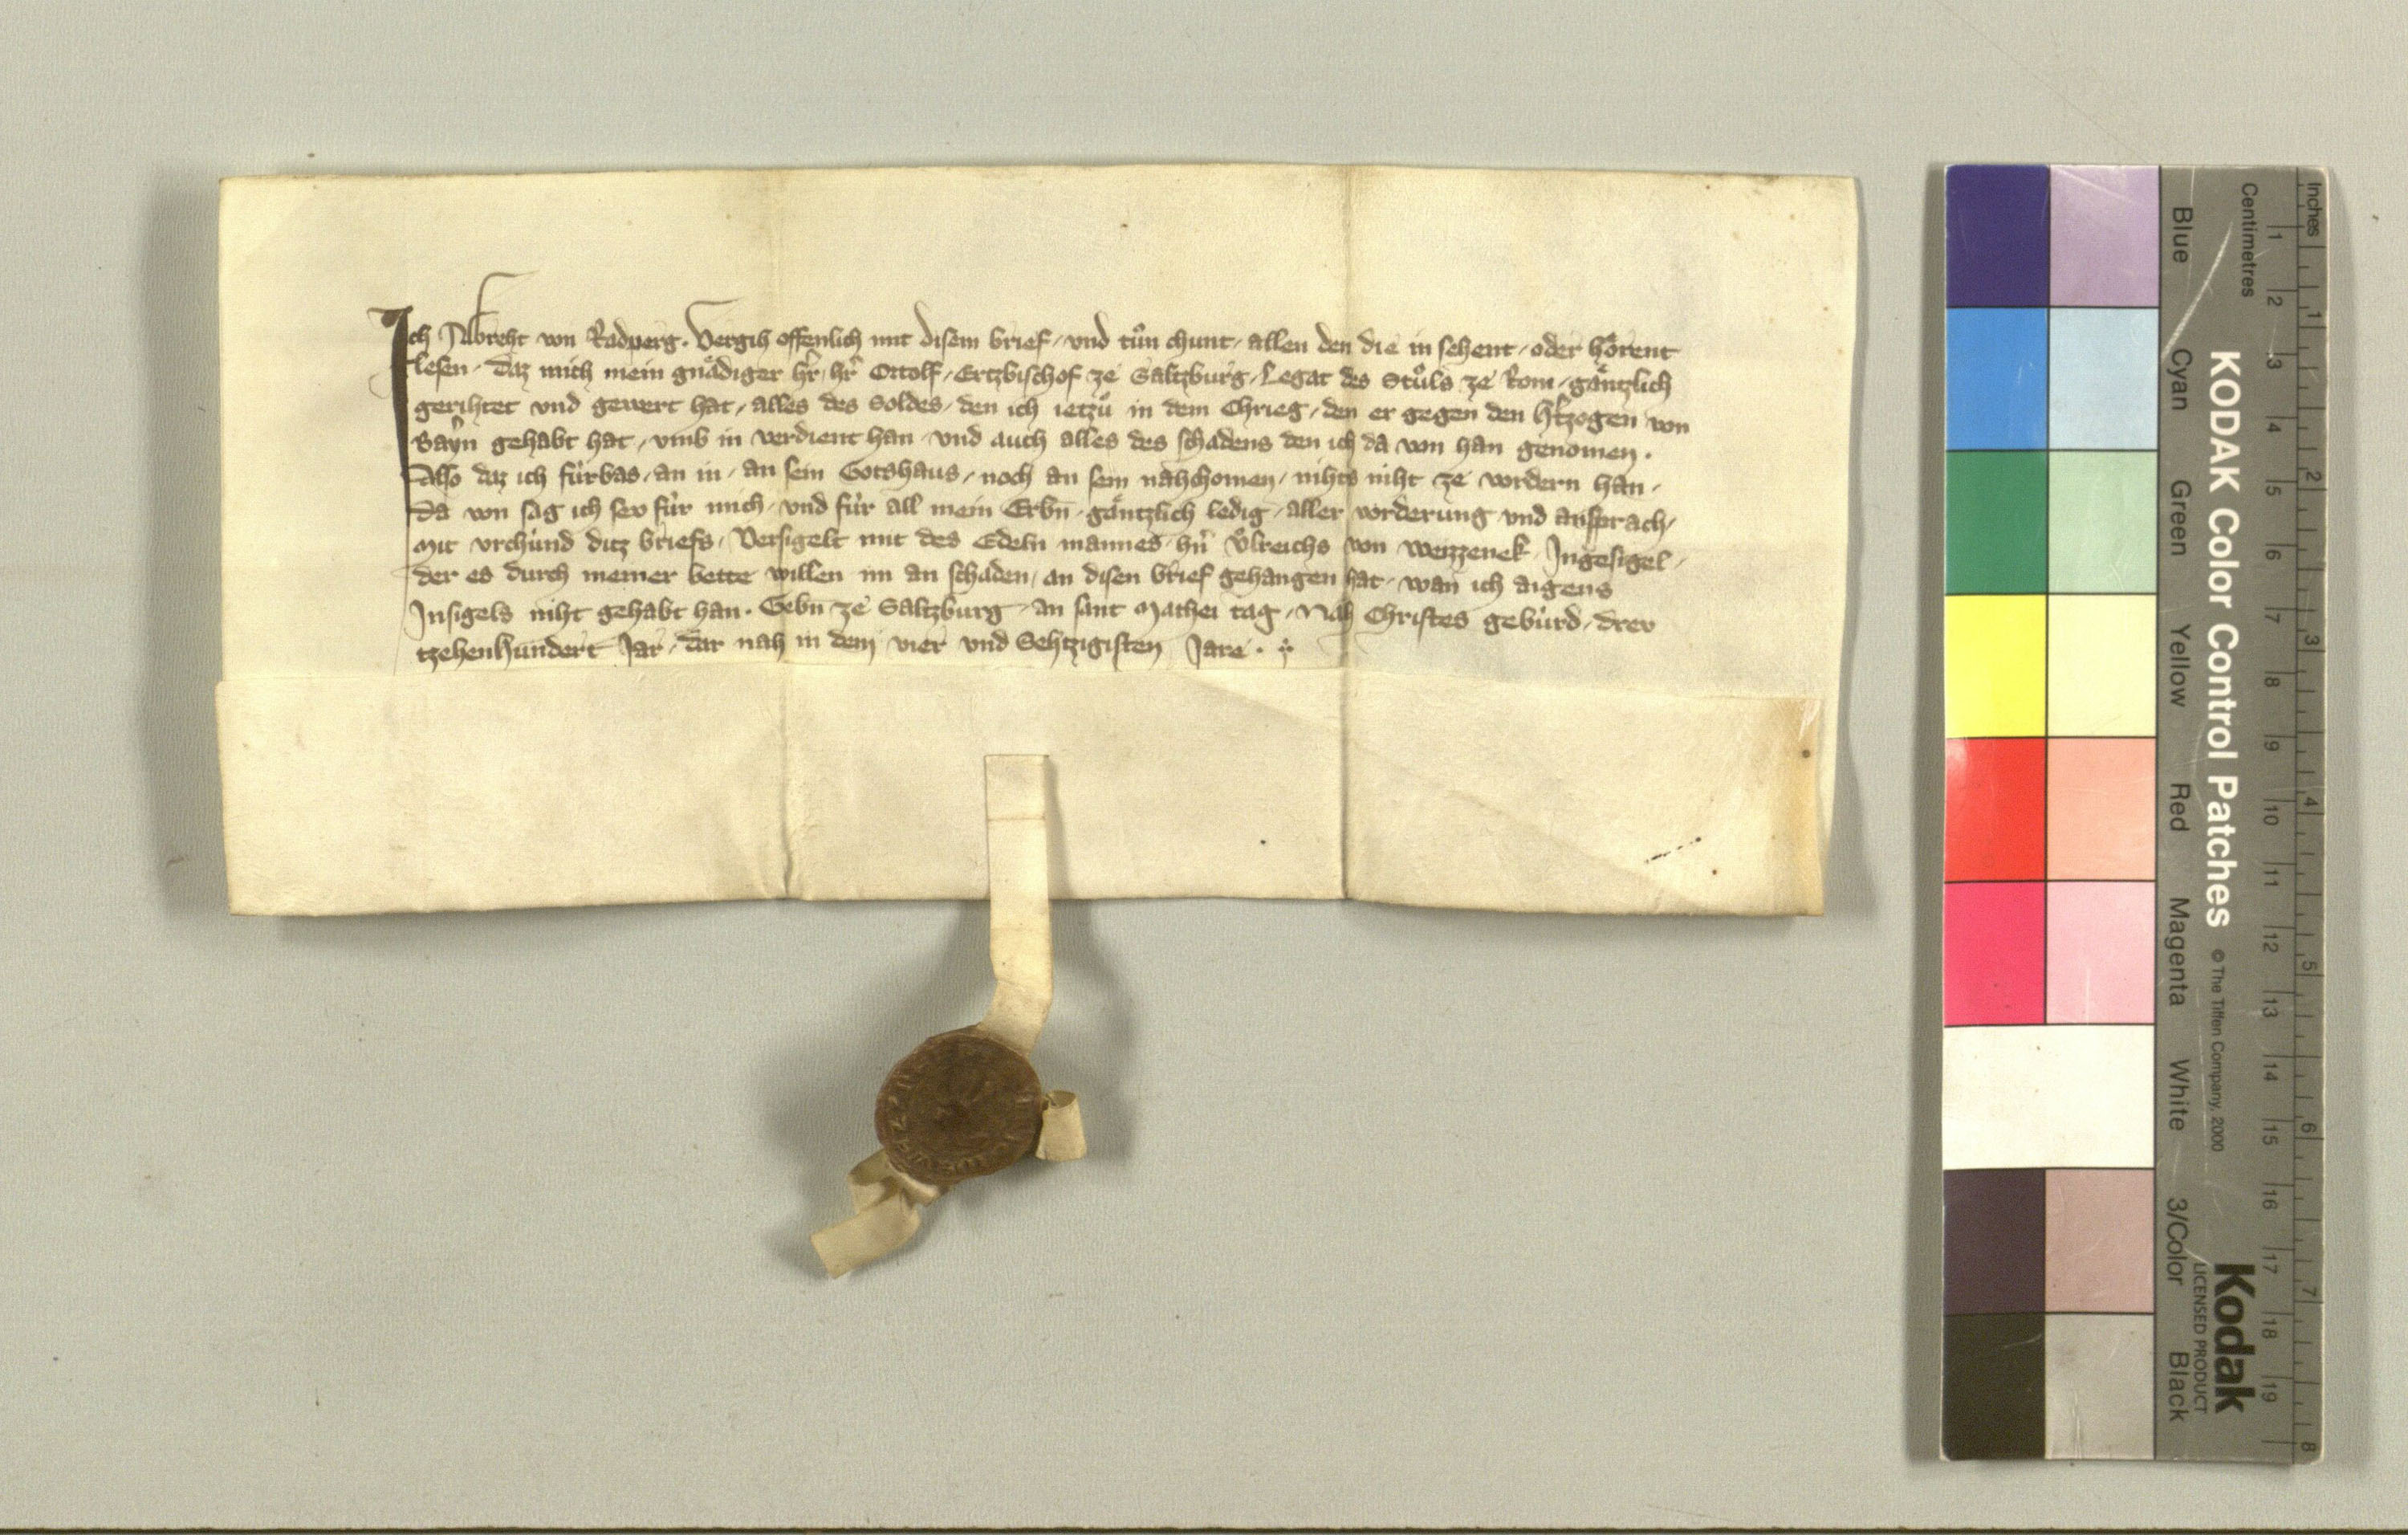 Ich Albreht von Radperg. Vergih offenlich mit disem brief, und tůn chunt, allen den die in sehent, oder hôrent
lesen, daz mich mein gnådiger hr̄, hr̄ Ortolf, Ertzbischof ze Saltzburg, Legat des Stůls ze Rom, gåntzlich
gerihtet und gewert hat, alles des Soldes, den ich ietzů in dem Chrieg, den er gegen den htzogen von
Bayrn gehabt hat, umb in verdient han, und auch alles des schadens den ich da von han genomen.
Also daz ich fürbas, an in, an sein Gotshaus, noch an sein nahchomen, nihts niht ze vordern han,
Da von sag ich sev für mich, und für all mein Erbn̄, gåntzlich ledig, aller vorderung und ansprach,
Mit urchünd ditz briefs, Versigelt mit des Edeln mannes, hn̄ Ůlreichs von Weizzenek, Ingesigel,
der es durch meiner bette willen im an schaden, an disen brief gehangen hat, wan ich aigens
Insigels niht gehabt han. Gebn̄ ze Saltzburg, an sant Mathei tag, Nah Christes gebürd, drev
tzehenhundert Jar, dar nah in dem vier und Sehtzigisten Jare.
KODAK Color Control Patches
© The Tiffen Company, 2000
Kodak
LICENSED PRODUCT
Blue Cyan Green Yellow Red Magenta White 3/Color Black
Centimetres 1 2 3 4 5 6 7 8 9 10 11 12 13 14 15 16 17 18 19
Inches 1 2 3 4 5 6 7 8